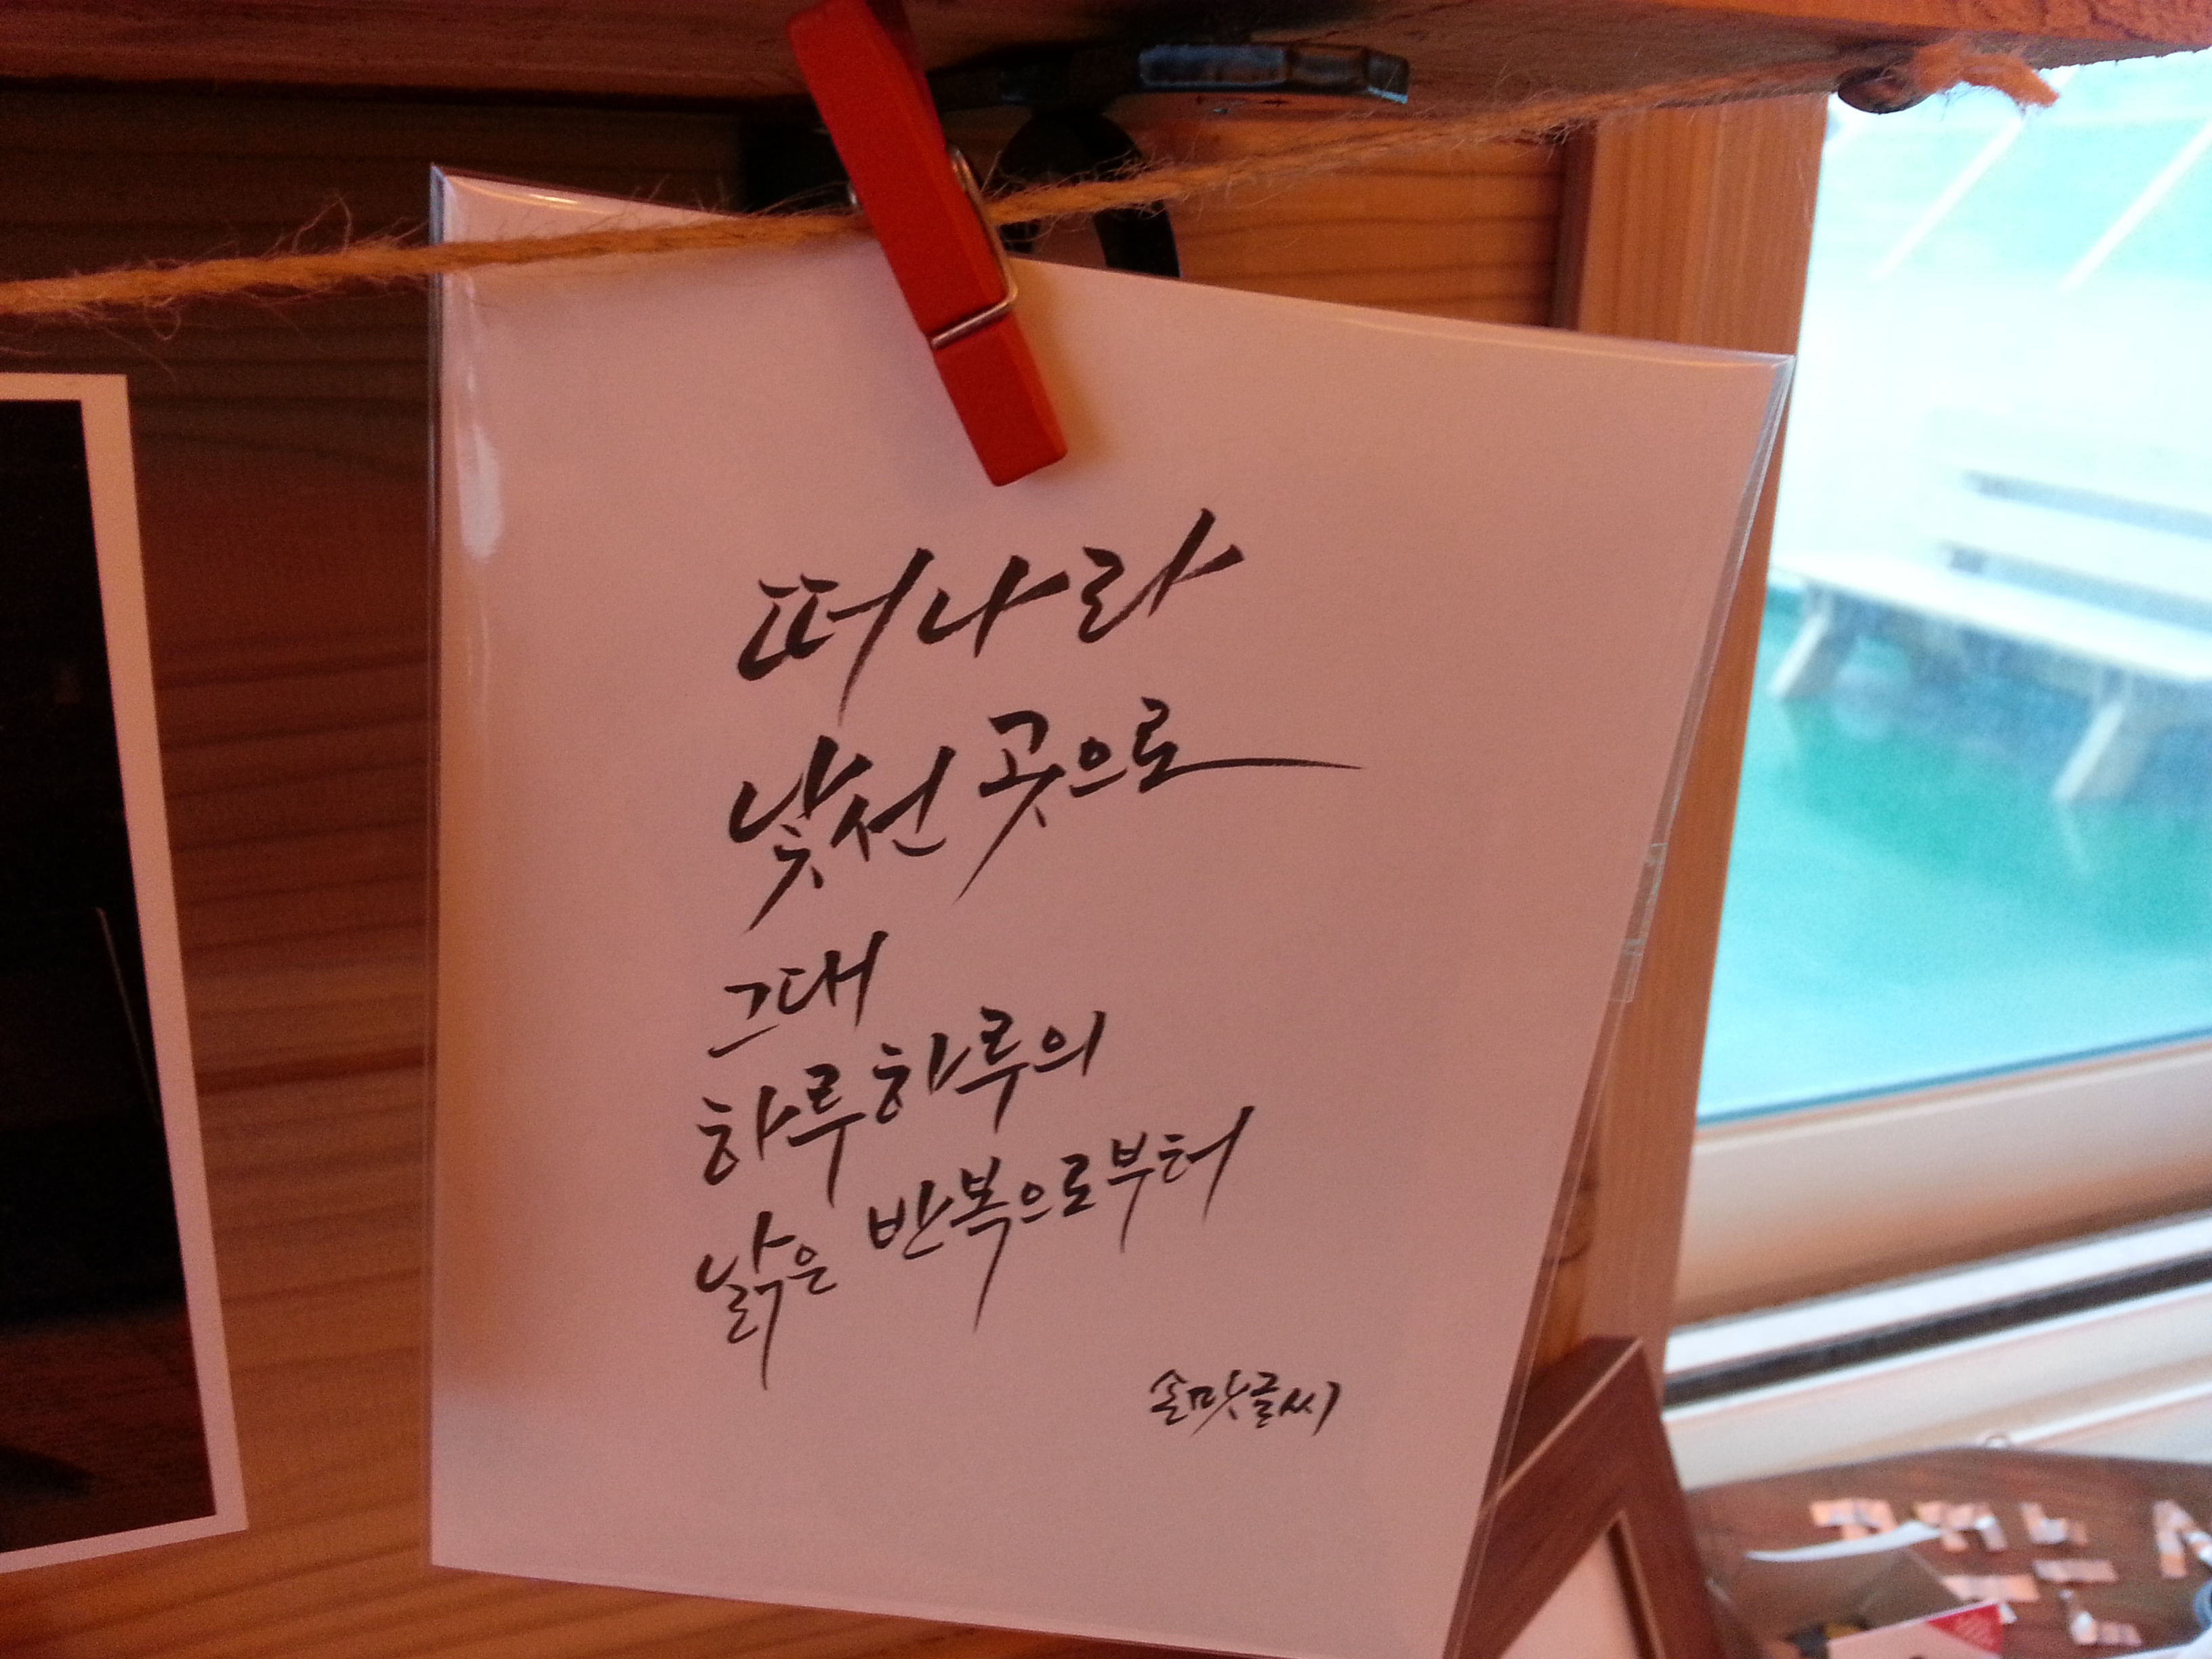 떠나라
낯선 곳으로
그대
하루하루의
낡은 반복으로부터
손맛글씨